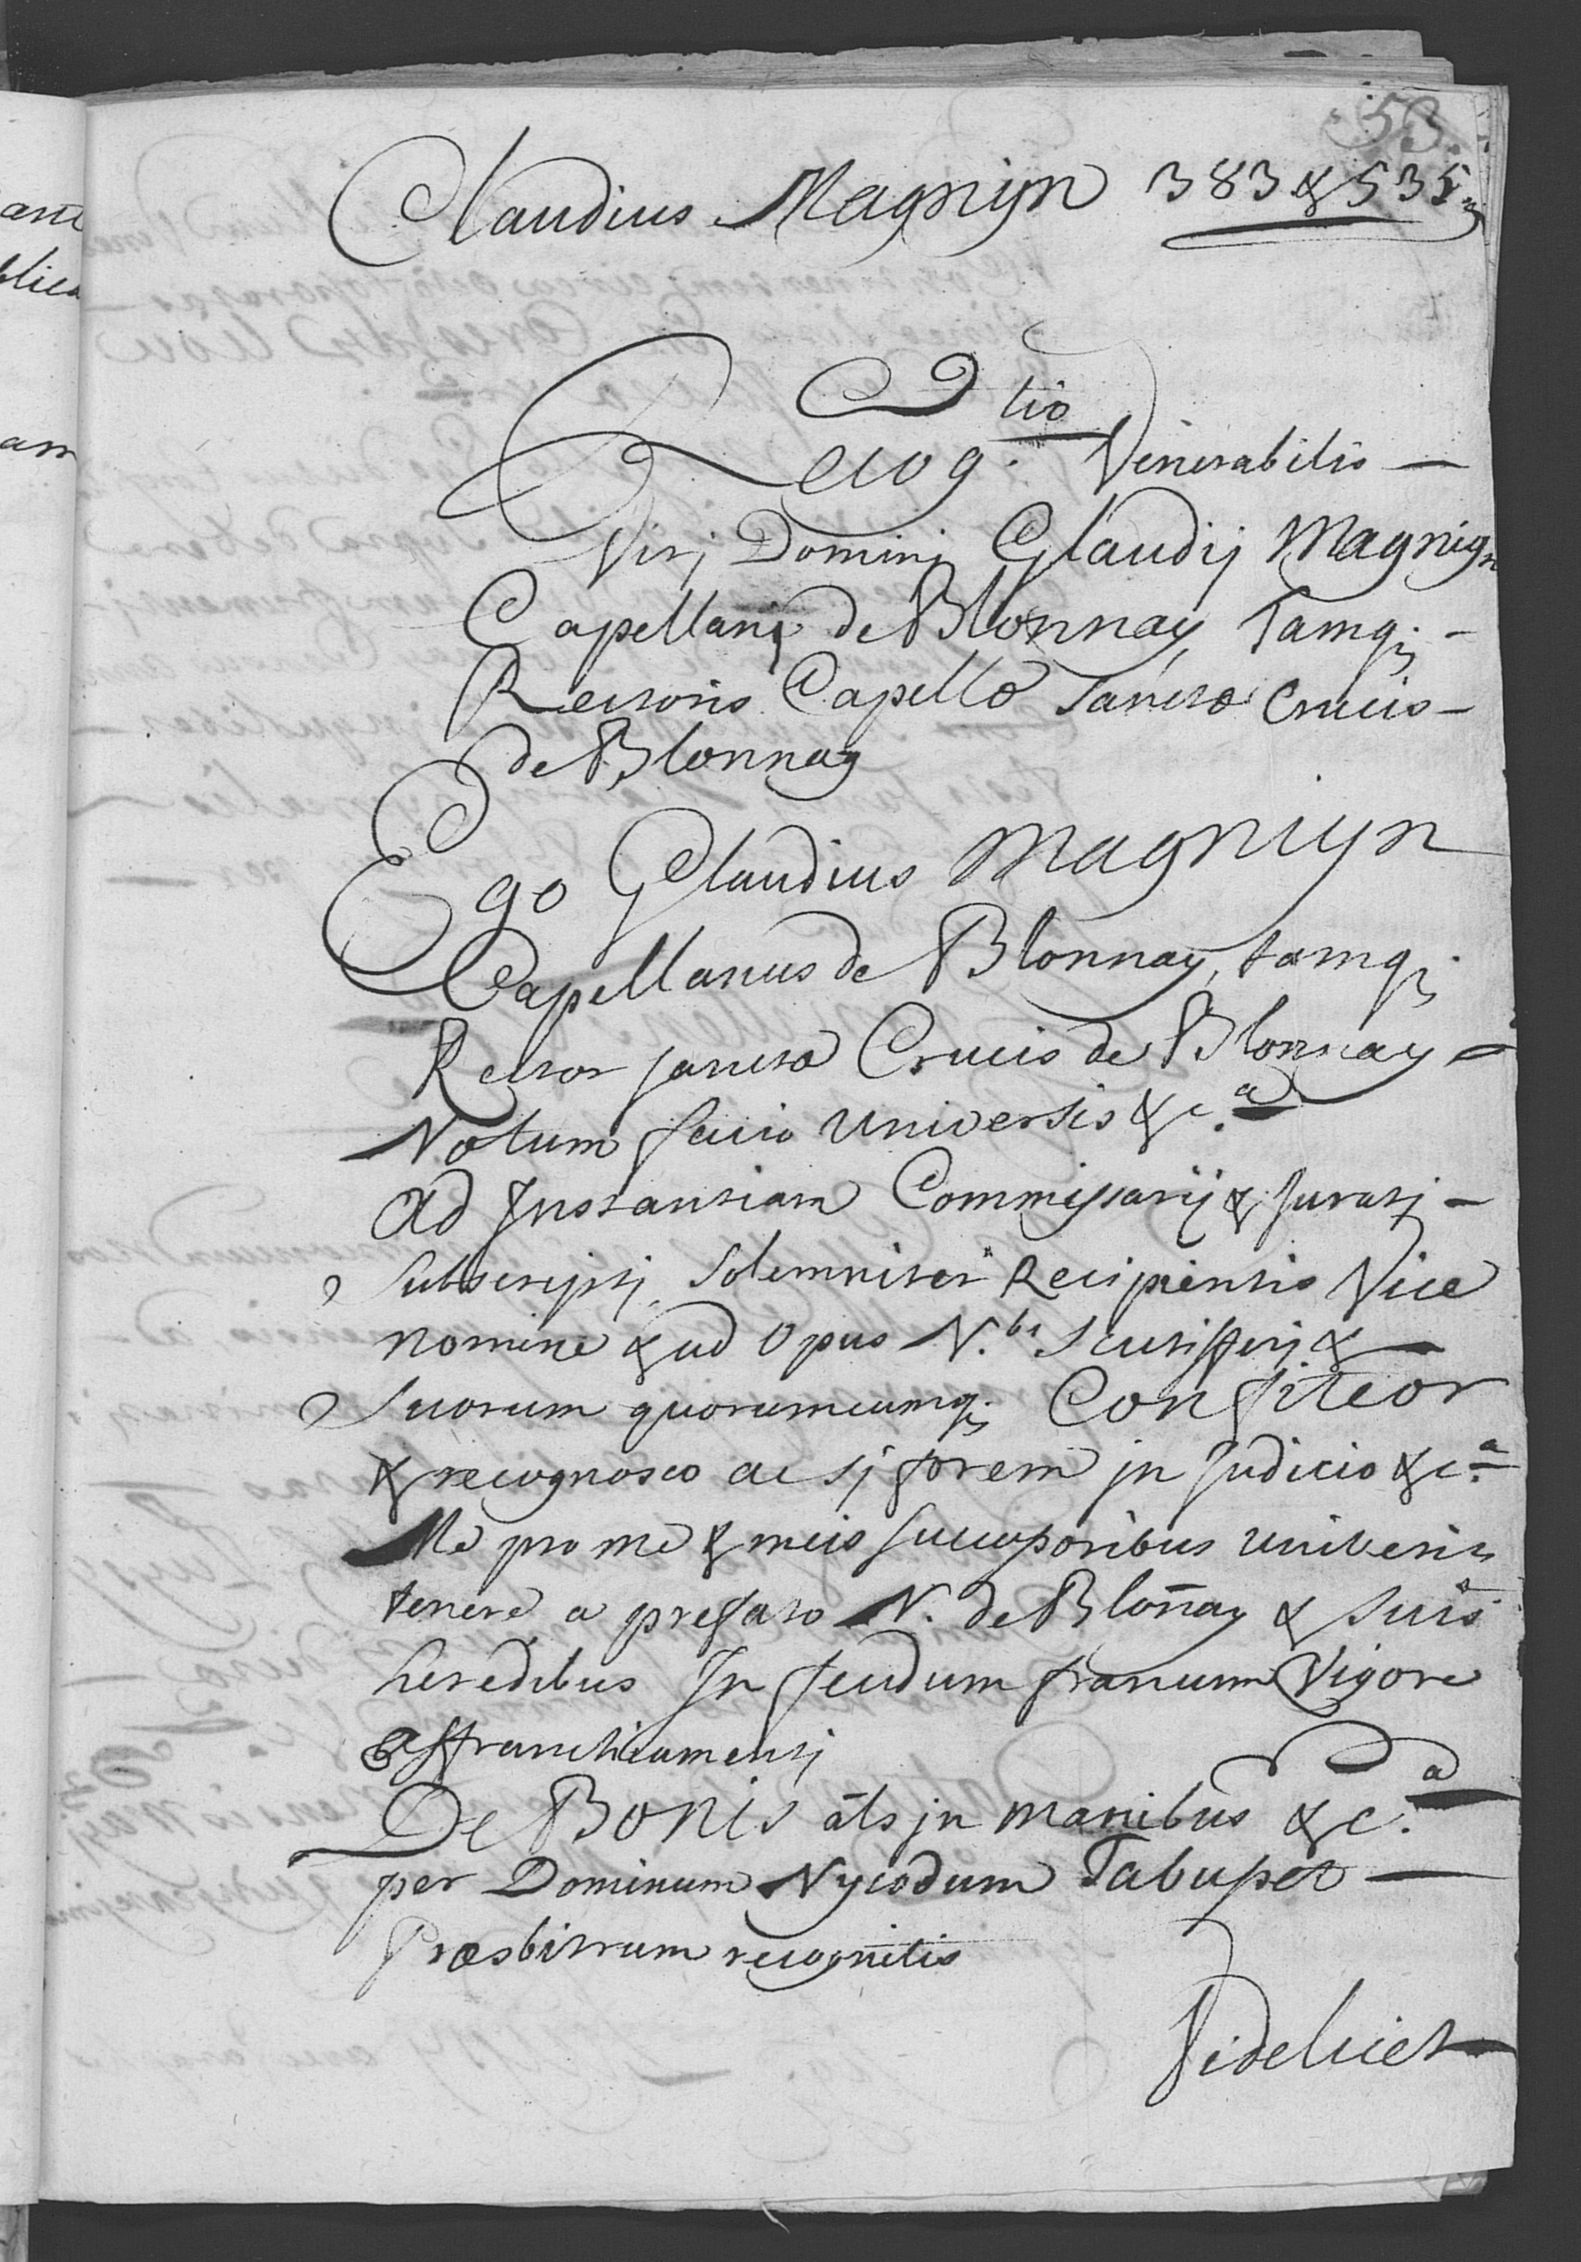 53.
Claudius Magnyn 383 & 535
Recog.tio Venerabilis
Virj Dominj Glaudij Magnign
Capellanj de Blonnay, Tamq;
Rectoris Capellæ Sanctæ Crucis
de Blonnay
Ego Glaudius Magniyn
Capellanus de Blonnay, tamq;
Rector sanctæ Crucis de Blonnay
Notum facio Universis &c.a
Ad Jnstantiam Commissarij & Juratj
Subscriptj, Solemniter Recipientis Vice
nomine & ad Opus N.bi Scutifferj &
Suorum quorumcumq; Confiteor
& recognosco ac sj forem jn Judicio &c.a
Me pro me & meis successoribus universis
tenere a prefato N. de Blon̄ay & suis
heredibus Jn feudum francum Vigore
affranchiamentj
De Bonis al̄s jn manibus &c.a
per Dominum Nycodum Tabuset
Præsbitrum recognitis
Videlicet
ant
blica
am